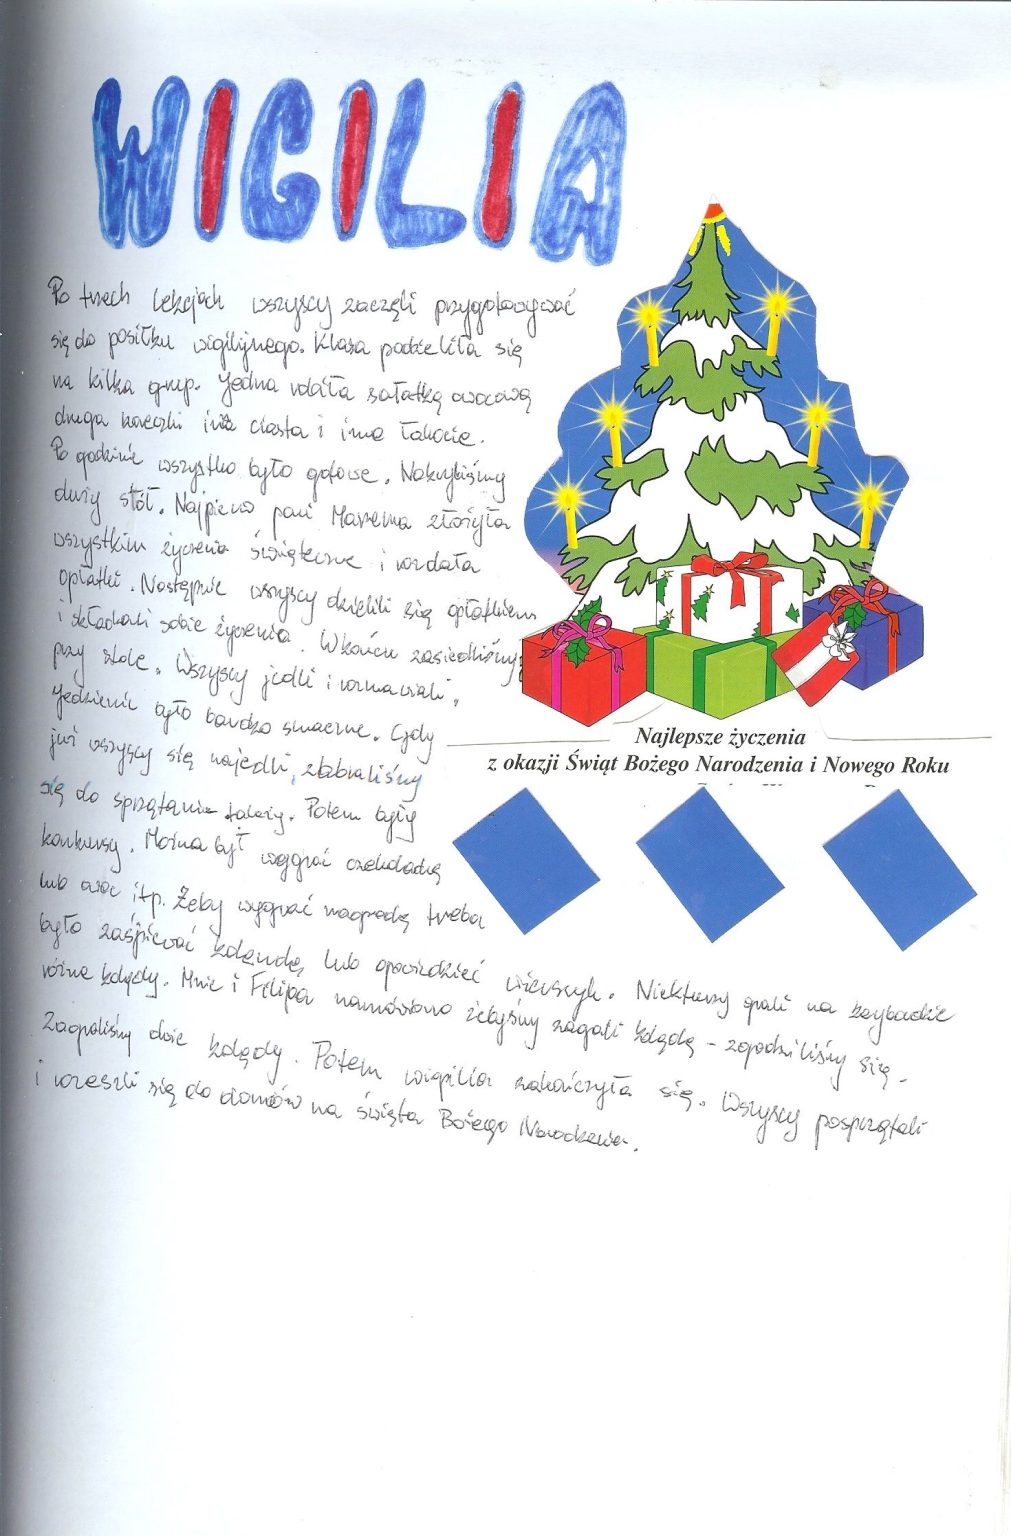 WIGILIA
Po trzech lekcjach wszyscy zaczęli przygotowywać
się do posiłku wigilijnego. Klasa podzieliła się
na kilka grup. Jedna robiła sałatkę owocową
druga kanapki inna ciasta i inne łakocie.
Po godzinie wszystko było gotowe. Nakryliśmy
duży stół. Najpierw pani Marzena złożyła
wszystkim życzenia świąteczne i rozdała
opłatki. Następnie wszyscy dzielili się opłatkiem
i składali sobie życzenia. W końcu zasiedliśmy
przy stole. Wszyscy jedli i rozmawiali.
Jedzenie było bardzo smaczne. Gdy
już wszyscy się najedli, zabraliśmy
się do sprzątania talerzy. Potem były
konkursy. Można był wygrać czekoladkę
lub owoc itp. Żeby wygrać nagrodę trzeba
było zaśpiewać kolędę lub opowiedzieć wierszyk. Niektórzy grali na
różne kolędy. Mnie i Filipa namówiono żebyśmy zagrali kolędę – zgodziliśmy się.
Zagraliśmy dwie kolędy. Potem wigilia zakończyła się. Wszyscy posprzątali
i rozeszli się do domów na święta Bożego Narodzenia.
Najlepsze życzenia
z okazji Świąt Bożego Narodzenia i Nowego Roku